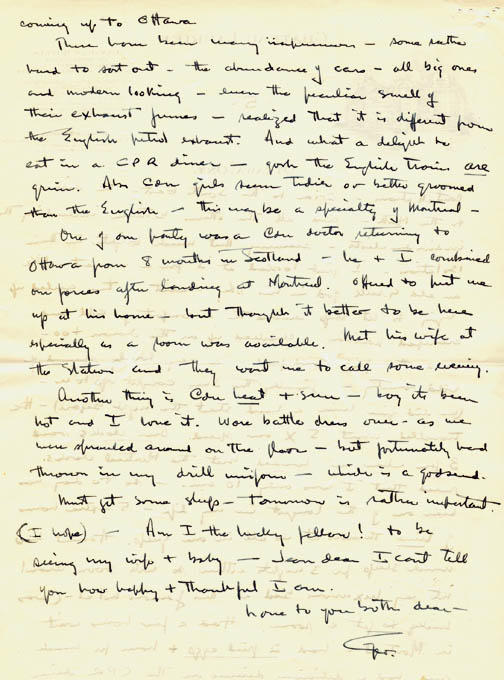 coming up to Ottawa
There have been many impressions – some rather
hard to sort out – the abundance of cars – all big ones
and modern looking – even the peculiar smell of
their exhaust fumes – realized that it is different from
the English petrol exhaust. And what a delight to
eat in a CPR diner – gosh the English trains are
grim. Also Cdn girls seem tidier or better groomed
than the English – this may be a specialty of Montreal –
One of our party was a Cdn doctor returning to
Ottawa from 8 months in Scotland – he + I combined
our forces after landing at Montreal. Offered to put me
up at his home – but thought it better to be here
especially as a room was available. Met his wife at
the station and they want me to call some evening.
Another thing is Cdn heat + sun – boy its been
hot and I love it. Wore battle dress over – as we
were sprawled around on the floor – but fortunately had
thrown in my drill uniform – which is a godsend.
Must get some sleep – tomorrow is rather important.
(I hope) – Am I the lucky fellow! to be
seeing my wife + baby – Jean dear I cant tell
you how happy + thankful I am.
Love to you both dear –